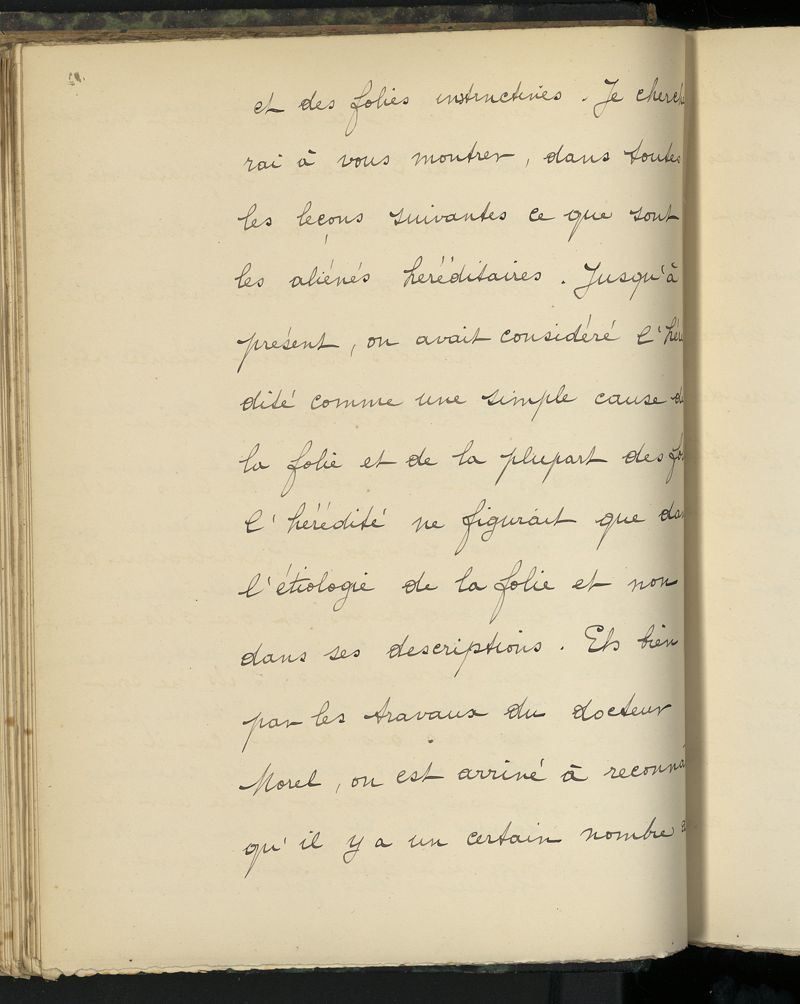 et des folies instinctives. Je cherch
rai à vous montrer, dans toutes
les leçons suivantes ce que sont
les aliénés heréditaires. Jusqu'à
présent, on avait considéré l'héré
dité comme une simple cause d
la folie et de la plupart des fo
l'hérédité ne figurait que dan
l'étiologie de la folie et non
dans ses descriptions. Eh bien
par les travaux du docteur
Morel, on est arrivé à reconnaî
qu'il y a un certain nombre